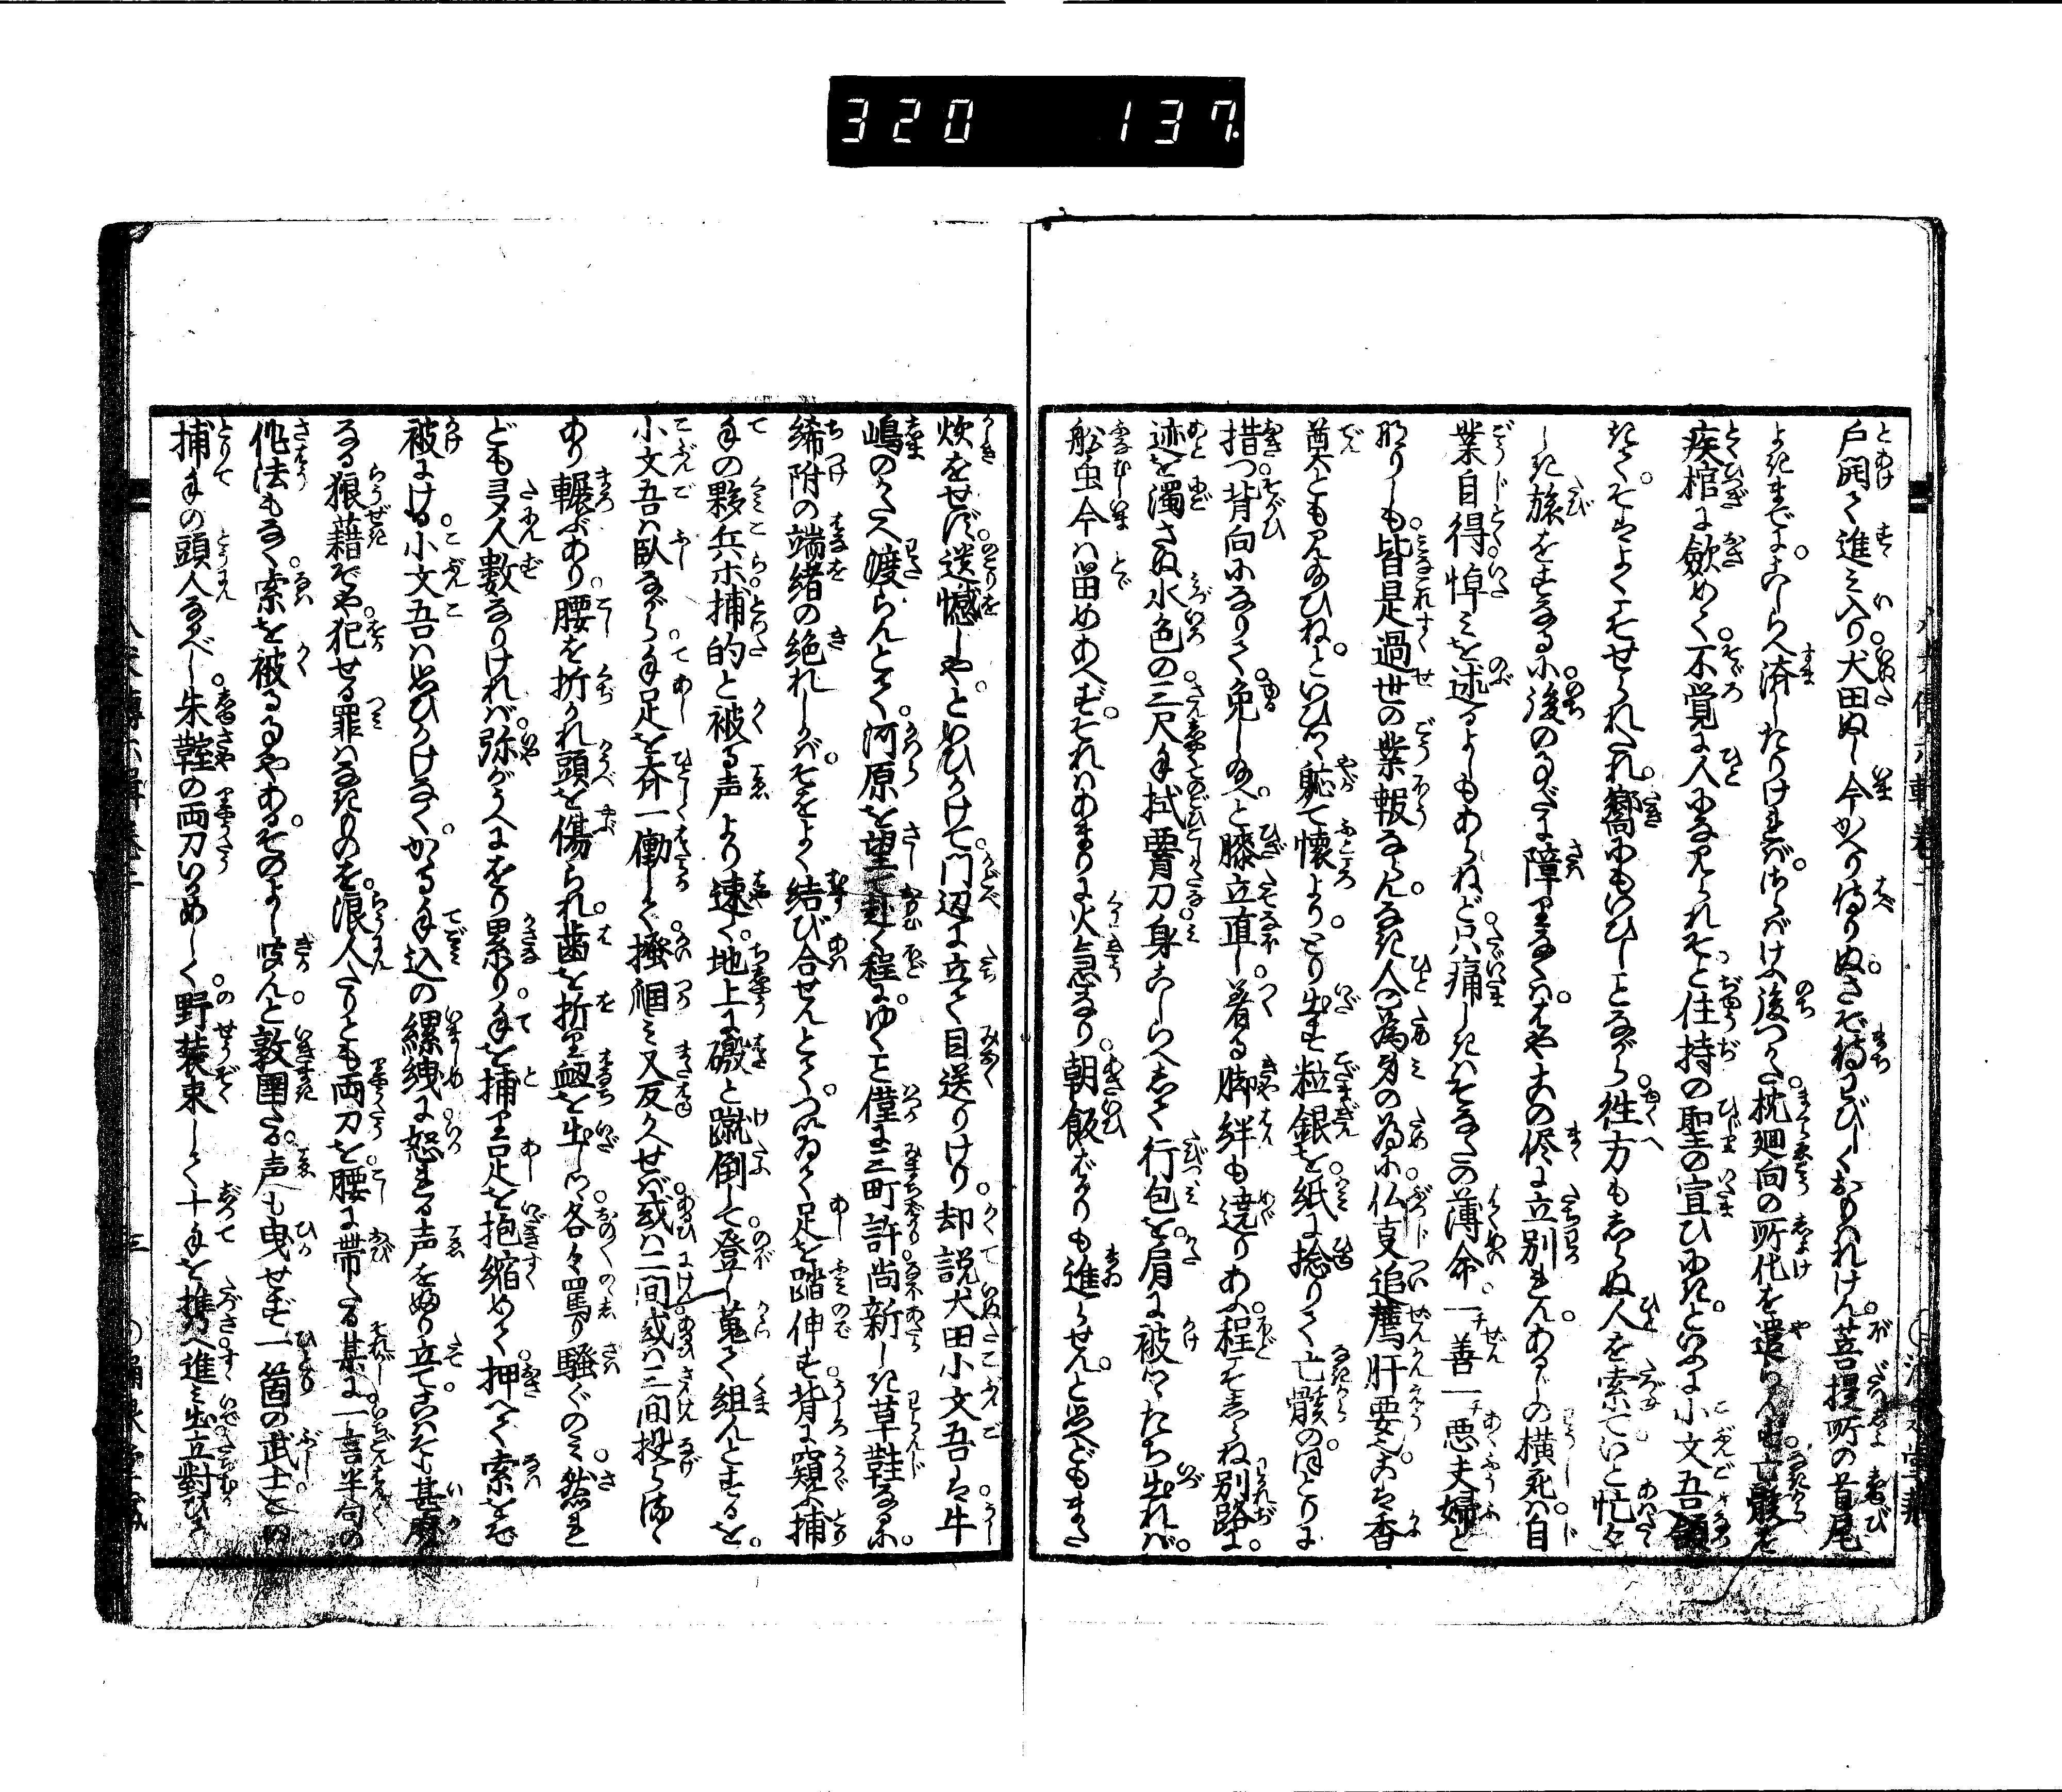 320 137
戸開て進み入り犬田ぬし今かへり侍りぬさぞ待わびしくおもはれけん菩提所の首尾
よきまでにこしらへ済したりければはらばけふ後つかた枕廻向の所化を遣らんず亡骸を
疾棺に斂めて不覚に人になみられそと住持の聖の宣ひにきといふに小文吾領
きてそはよくこそせられたれ嚮にもいひしことながら往方もしらぬ人を索ていと忙々
しき旅をすなるに後の事だに障りなくはや夫の侭に立別れんあるじの横死は自
業自得悼みを述るよしもあらねど只痛しきはそなたの薄命一善一悪夫婦と
なりしも皆是過世の業報ならんなき人の為身の為に仏事追薦肝要也こは香
奠とも見給ひねといひつゝ軈て懐よりとり出す粒銀を紙に捻りて亡骸のほとりに
措つ背向になりて免し給へと膝立直し着る脚絆も遶りあふ程こそしらね別路に
迹を濁さぬ水色の三尺手拭腰刀身こしらへして行包を肩に被つゝたち出れば
船虫今は留めあへずそれはあまりに火急なり朝飯ばかりも進らせんと思へどもまだ
炊をせず送憾しやといひかけて門辺に立て目送りけり却説犬田小文吾は牛
嶋のかたへ渡らんとて河原を望て赴く程にゆくこと僅に三町許尚新しき草鞋なるに
締附の端緒の絶れしかばそをよく結び合せんとてつい居て足を踏伸す背に窺ふ捕
手の夥兵ホ捕的と被る声より速く地上に礑と蹴倒して登し蒐て組んとするを
小文吾は臥ながら手足を斉一働して掻𢌞み又反かへせば或は二間或は三間投らるゝ
あり輾ぶあり腰を折られ頭を傷られ歯を折り衂を出しつゝ各々罵り騒ぐのみ然れ
ども夛人数なりければ弥がうへにをり累り手を捕り足を抱縮めて押へて索をぞ
被にける小文吾は思ひかけなくかゝる手込の縲絏に怒れる声をふり立てこはそも甚麼
なる狼藉ぞや犯せる罪はなきものを浪人たりとも両刀を腰に帯たる某に一言半句の
作法もなく索を被る事やあるそのよし聴んと敦圉たる声も曳せず一箇の武士この
捕手の頭人なるべし朱鞘の両刀いかめしく野装束して十手を携へ進み出立對ひて